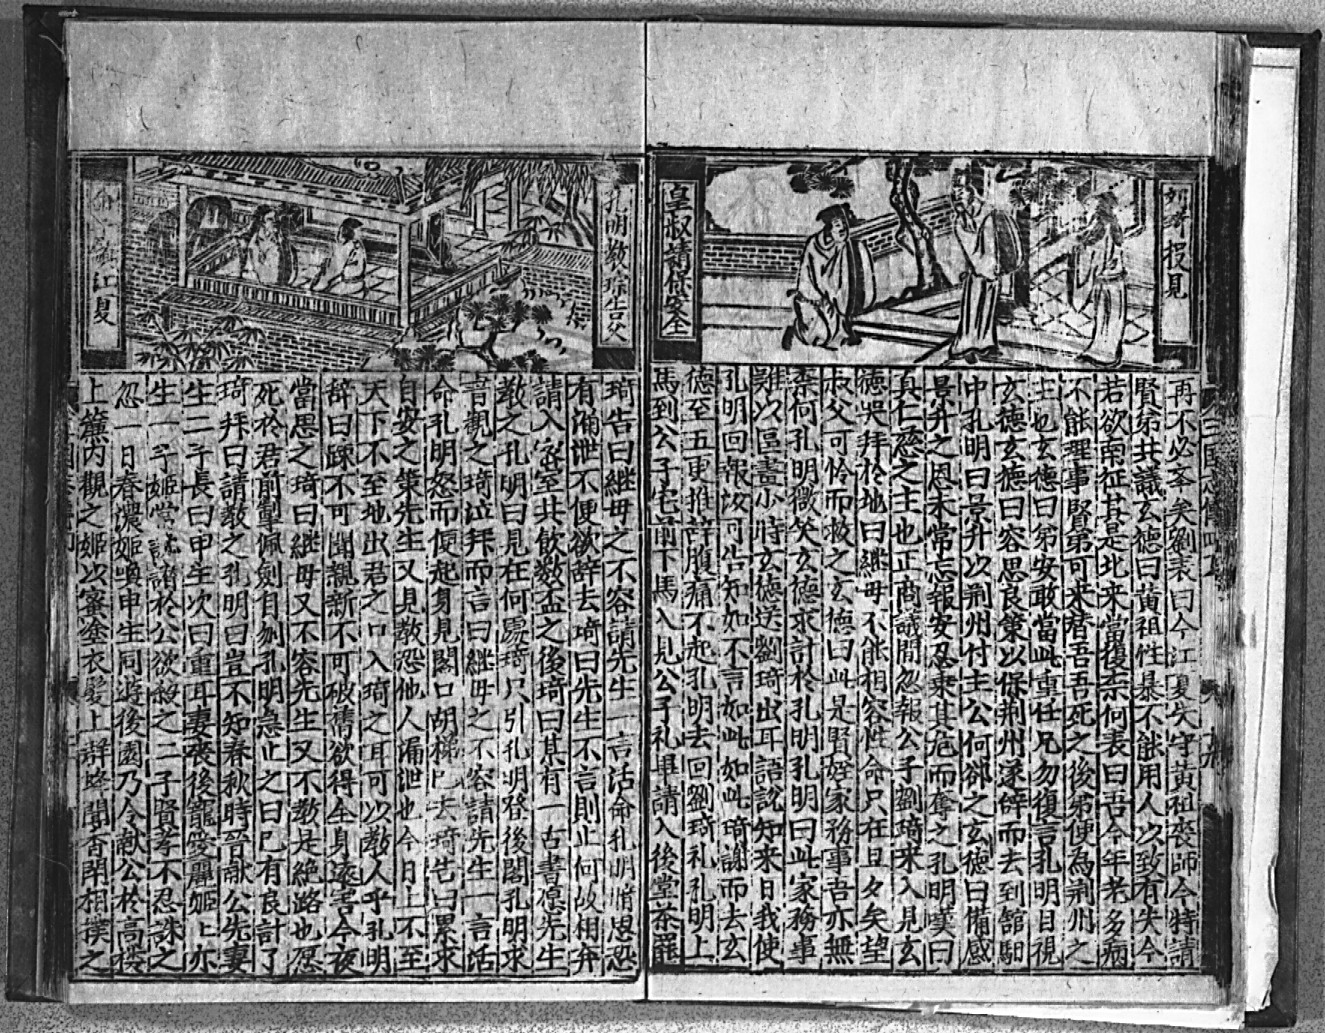 劉琦投見
皇叔請保安全
再不必奈矣劉表曰今江夏失守黃祖喪師今特請
賢弟共議玄德曰黃祖性暴不能用人以致有失今
若欲南征其是北來當復柰何表曰吾今年老多病
不能理事賢弟可來替吾吾死之後弟便為荊州之
主也玄德曰弟安敢當此重任兄勿復言孔明目視
玄德玄德曰容思良策以保荊州遂辞而去到舘馹
中孔明曰景升以荊州付主公何郤之玄德曰備感
景升之恩未常忘報安忍乗其危而奪之孔明嘆曰
真仁慈之主也正商議間忽報公子劉琦來入見玄
德哭拜於地曰継母不能相容性命只在旦夕矣望
叔父可怜而救之玄德曰此是賢姪家務事吾亦無
柰何孔明微笑玄德求計於孔明孔明曰此家務事
難以區畫小時玄德送劉琦出耳語說知來日我使
孔明回報汝可告知如不言如此如此琦謝而去玄
德至五更推辞腹痛不起孔明去回劉琦礼孔明上
馬到公子宅前下馬入見公子礼畢請入後堂茶罷
孔明教琦告父
江夏
琦告曰継母之不容請先生一言活命孔明惟恩恐
有漏泄不便欲辞去琦曰先生不言則止何故相弃
請入密室共飲数盃之後琦曰某有一古書愿先生
教之孔明曰見在何處琦只引孔明登後閣孔明求
音觀之琦泣拜而言曰継母之不容請先生一言活
命孔明怒而便起身見閣口胡梯已去琦告曰累求
自安之策先生又見教恐他人漏泄也今日上不至
天下不至地出君之口入琦之耳可以教人乎孔明
辞曰踈不可聞親新不可破舊欲得全身遠害今夜
當思之琦曰継母又不容先生又不教是絕路也愿
死於君前掣佩劍自刎孔明急止之曰已有良計了
琦拜曰請教之孔明曰豈不知春秋時晉献公先妻
生二子長曰申生次曰重耳妻喪後寵爱麗姬上亦
生一子姬常讒譖於公欲殺之二子賢孝不忍誅之
忽一日春濃姬喚申生同遊後園乃令献公於高楼
上簾內觀之姬以蜜塗衣髮上群蜂聞香閗相撲之